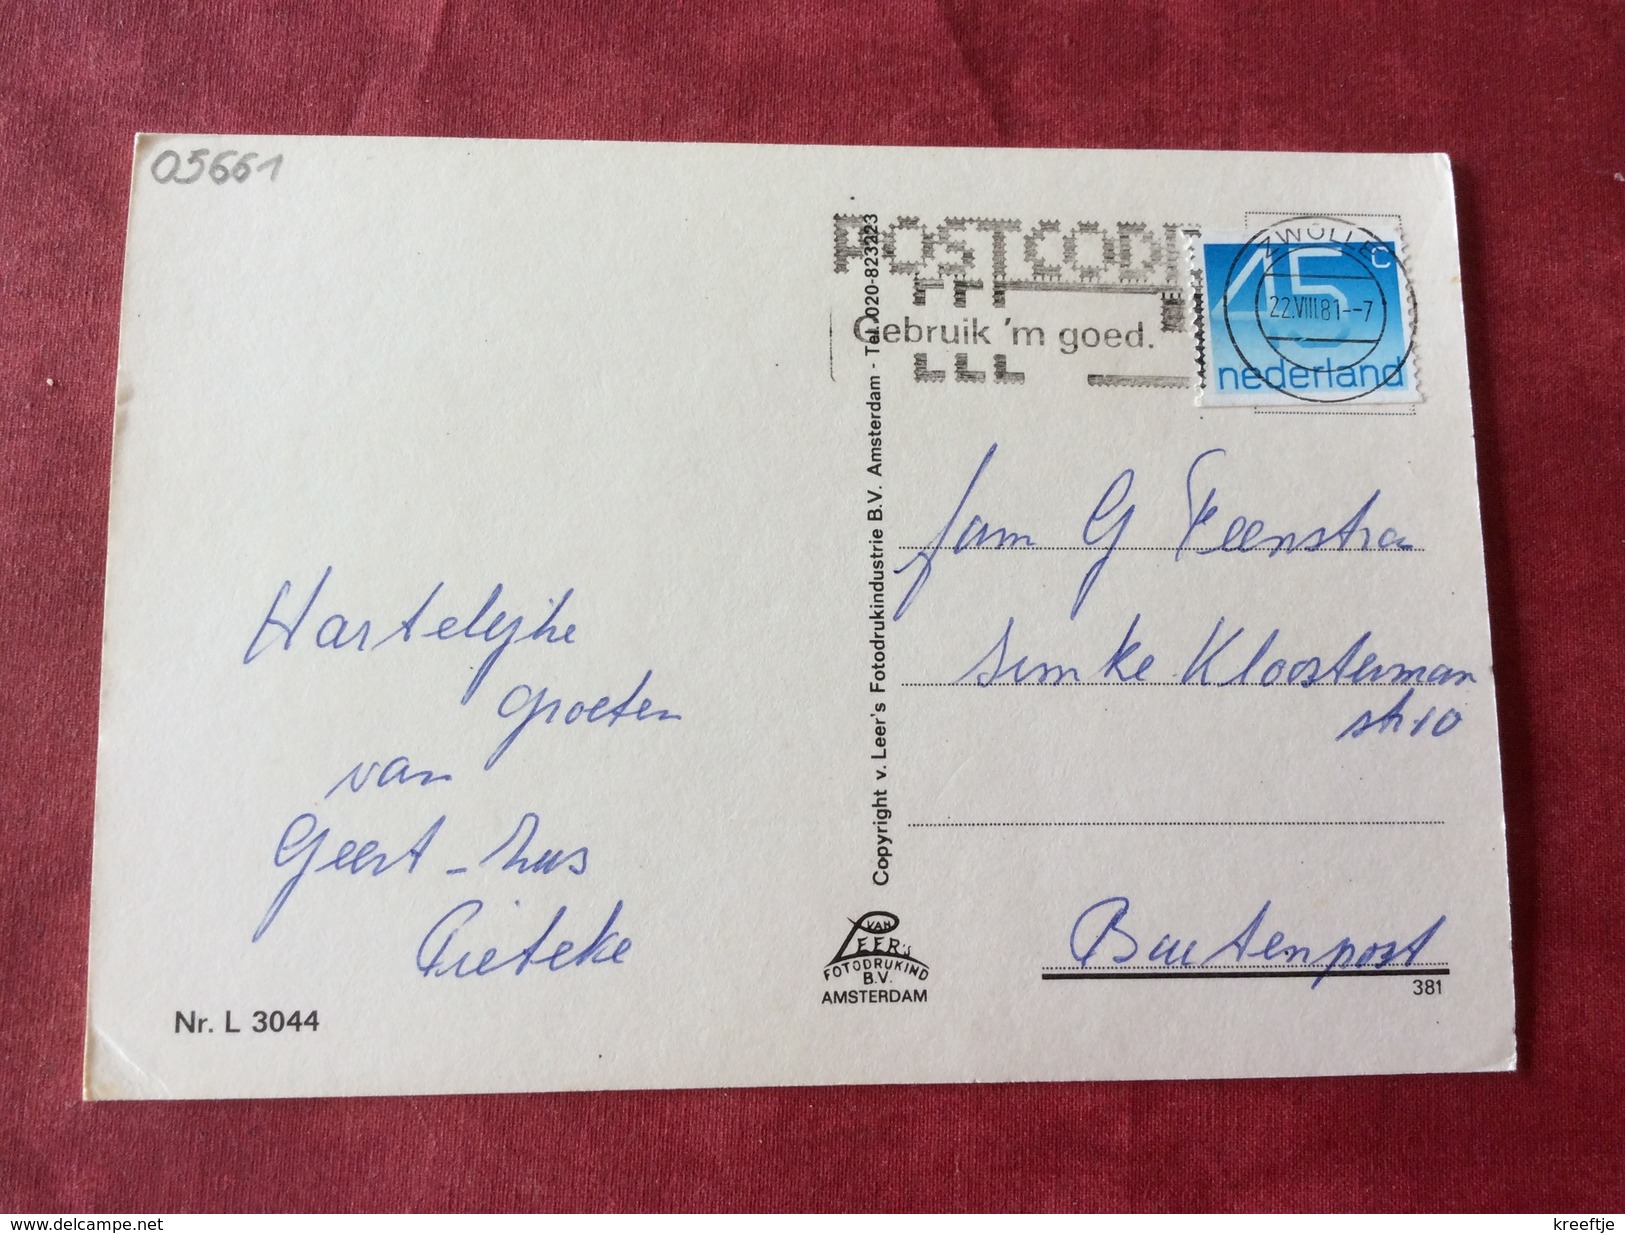 05661
POSTCODE
Gebruik 'm goed.
ZWOLLE
22.VIII.81--7
45c
nederland
Hartelijke
groeten
van
Geert - Zus
Pieteke
Nr. L 3044
Copyright v. Leer's Fotodrukindustrie B.V. Amsterdam - Tel. 020-823223
VAN
LEER'S
FOTODRUKIND
B.V.
AMSTERDAM
fam G Feenstra
Simke Kloosterman
str 10
Buitenpost
381
www.delcampe.net
kreeftje